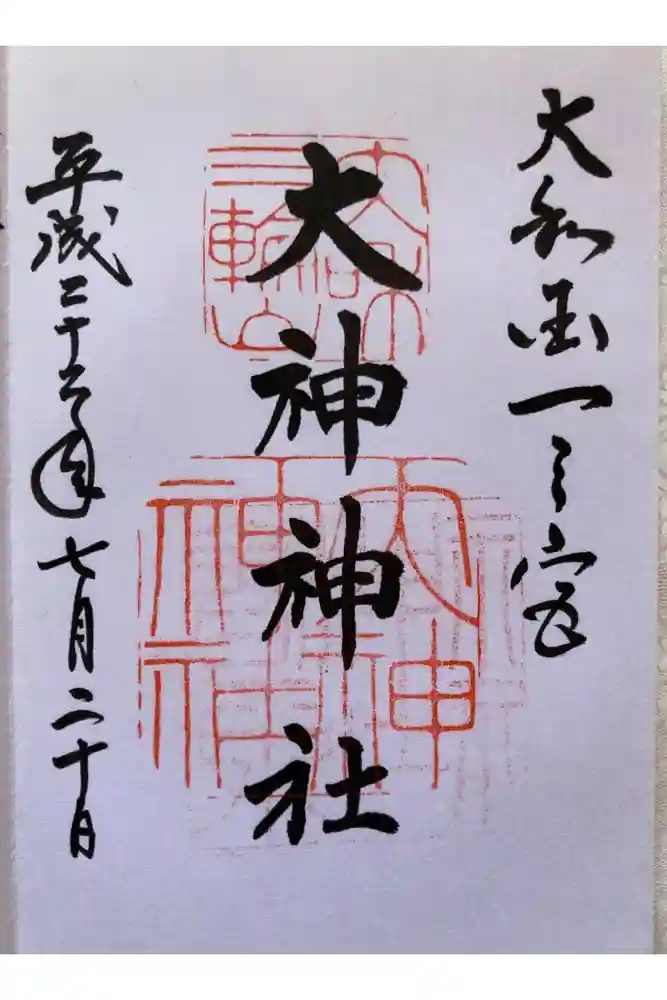 大和国一之宮
大神神社
平成二十六年七月二十日
大神
神社